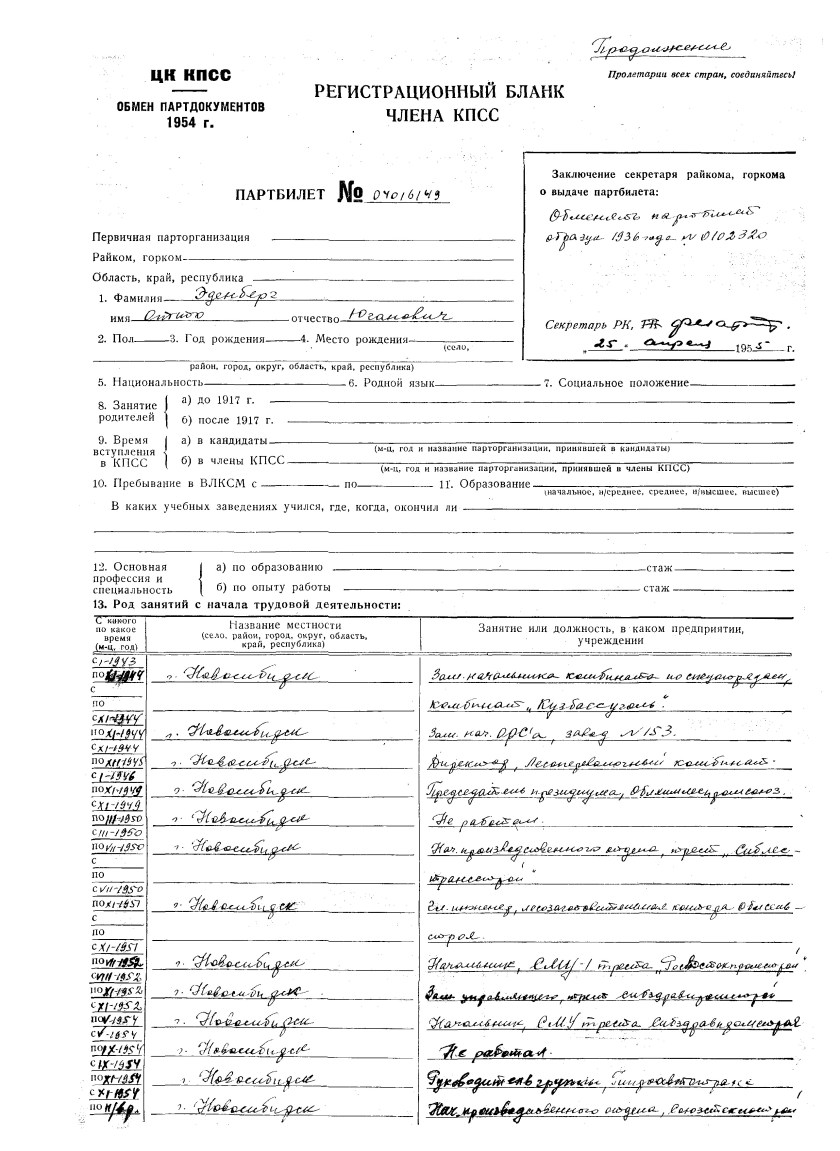 Продолжение
ЦК КПСС
Пролетарии всех стран, соединяйтесь!
ОБМЕН ПАРТДОКУМЕНТОВ
1954 г.
РЕГИСТРАЦИОННЫЙ БЛАНК
ЧЛЕНА КПСС
Заключение секретаря райкома, горкома
о выдаче партбилета:
ПАРТБИЛЕТ № 04016149
Обменять партбилет
образца 1936 года N 0102320
Первичная парторганизация
Райком, горком
Область, край, республика
1. Фамилия Эденберг
имя отчество Юганович
Секретарь РК,
2. Пол 3. Год рождения 4. Место рождения
(село,
„25" апреля 1955 г.
район, город, округ, область, край, республика)
5. Национальность 6. Родной язык 7. Социальное положение
8. Занятие родителей
а) до 1917 г.
б) после 1917 г.
9. Время вступления в КПСС
а) в кандидаты
(м-ц, год и название парторганизации, принявшей в кандидаты)
б) в члены КПСС
(м-ц, год и название парторганизации, принявшей в члены КПСС)
10. Пребывание в ВЛКСМ с по 11. Образование
(начальное, н/среднее, среднее, н/высшее, высшее)
В каких учебных заведениях учился, где, когда, окончил ли
12. Основная профессия и специальность
а) по образованию стаж
б) по опыту работы стаж
13. Род занятий с начала трудовой деятельности:
С какого по какое время (м-ц, год)
Название местности
(село, район, город, округ, область, край, республика)
Занятие или должность, в каком предприятии, учреждении
с I-1943
по XI-1944 г. Новосибирск Зам. начальника комбината по спецотрядам,
с
по комбинат „Кузбассуголь".
с XI-1944
по XI-1944 г. Новосибирск Зам. нач. ОРС'а, завод N 153.
с XI-1944
по XII-1945 г. Новосибирск Директор, Лесоперевалочный комбинат.
с I-1946
по XI-1949 г. Новосибирск Председатель президиума, Облхимлеспромсоюз.
с XI-1949
по III-1950 г. Новосибирск Не работал.
с III-1950
по VII-1950 г. Новосибирск Нач. производственного отдела, трест „Сиблес-
с
по трансстрой"
с VII-1950
по XI-1951 г. Новосибирск Гл. инженер, лесозаготовительная контора
с
по
с XI-1951
по VII-1952 г. Новосибирск Начальник, СМУ-1 треста „Росвостокпромстрой".
с VIII-1952
по XI-1952 г. Новосибирск Зам. управляющего, трест
с XI-1952
по V-1954 г. Новосибирск Начальник, СМУ треста
с V-1954
по IX-1954 г. Новосибирск Не работал.
с IX-1954
по XI-1954 г. Новосибирск Руководитель группы, Гипроавтотранс
с XI-1954
по н/вр. г. Новосибирск Нач. производственного отдела,